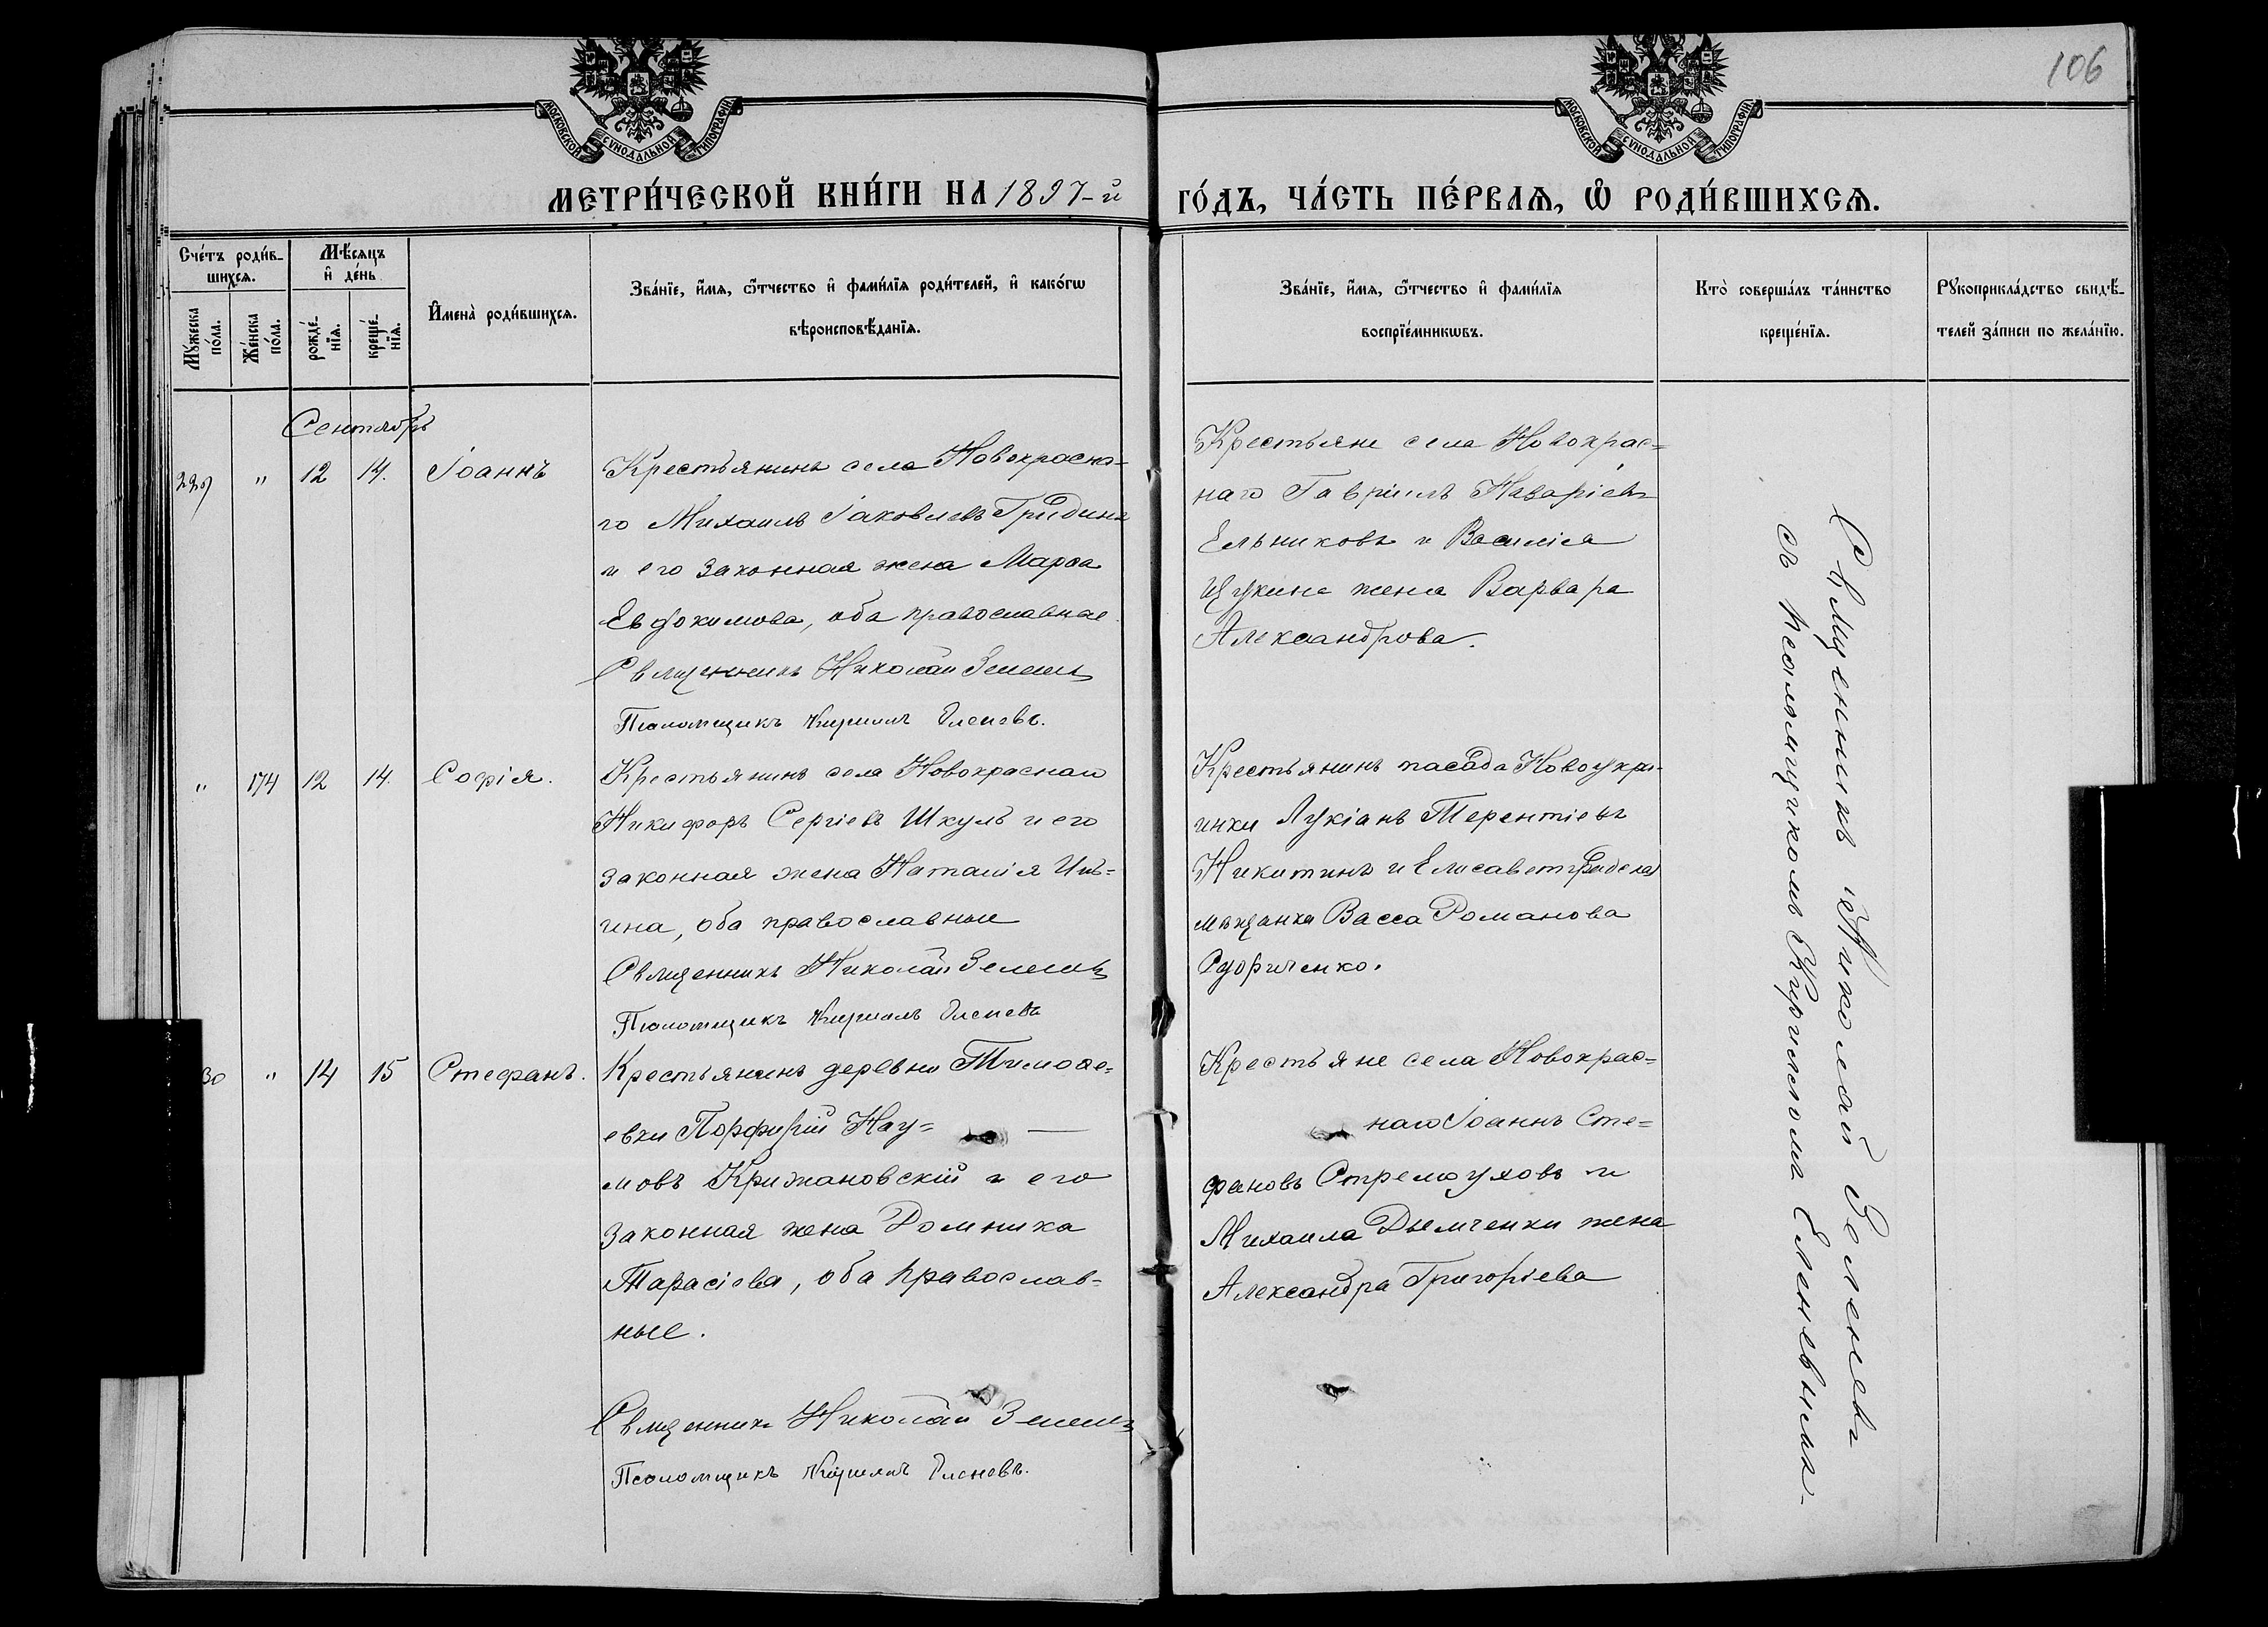 106
МОСКОВСКОЙ СѴНОДАЛЬНОЙ ТИПОГРАФІИ
МОСКОВСКОЙ СѴНОДАЛЬНОЙ ТИПОГРАФІИ
МЕТРИ́ЧЕСКОЙ КНИ́ГИ НА 1897-й ГО́ДЪ, ЧА́СТЬ ПЕ́РВАѦ, Ѡ҆ РОДИ́ВШИХСѦ.
Сче́тъ роди́в-
шихсѧ.
Мꙋ́жеска
по́ла.
Же́нска
по́ла.
Мѣ́сѧцъ
и҆ де́нь
рожде́-
нїѧ.
креще́-
нїѧ.
И҆мена̀ роди́вшихсѧ.
Зва́нїе, и҆́мѧ, ѻ҆́тчество и҆ фами́лїѧ роди́телей, и҆ како́гѡ
вѣроисповѣ́данїѧ.
Зва́нїе, и҆́мѧ, ѻ҆́тчество и҆ фами́лїѧ
воспрїе́мникѡвъ.
Кто̀ соверша́лъ та́инство
креще́нїѧ.
Рꙋкоприкла́дство свидѣ́-
телей за́писи по жела́нїю.
Сентябрь
229 " 12 14. Іоаннъ
Крестьянинъ села Новокрасна-
го Михаилъ Іаковлевъ Гридинъ
и его законная жена Марѳа
Евдокимова, оба православные
Священникъ Николай Зеленевъ
Псаломщикъ Кириллъ Еленевъ.
Крестьяне села Новокрас=
наго Гавріилъ Назаріевъ
Ельниковъ и Василія
Щукина жена Варвара
Александрова.
" 174 12 14. Софія.
Крестьянинъ села Новокраснаго
Никифоръ Сергіевъ Шкуль и его
законная жена Наталія Иль=
ина, оба православные
Священникъ Николай Зеленевъ
Псаломщикъ Кириллъ Еленевъ
Крестьянинъ пасада Новоукра-
инки Лукіанъ Терентіевъ
Никитинъ и Елисаветградская
мѣщанка Васса Романова
30 " 14 15 Стефанъ.
Крестьянинъ деревни Тимоѳе=
евки Порфирій Нау=
мовъ Крижановскій и его
законная жена Домника
Тарасіева, оба православ-
ные.
Священникъ Николай Зеленевъ
Псаломщикъ Кириллъ Еленевъ.
Крестьяне села Новокрас=
наго Іоаннъ Сте=
фановъ Стремоуховъ и
Михаила Дьемченки жена
Александра Григоріева
Священникъ Николай Зеленевъ
съ псаломщикомъ Кирилломъ Еленевымъ.